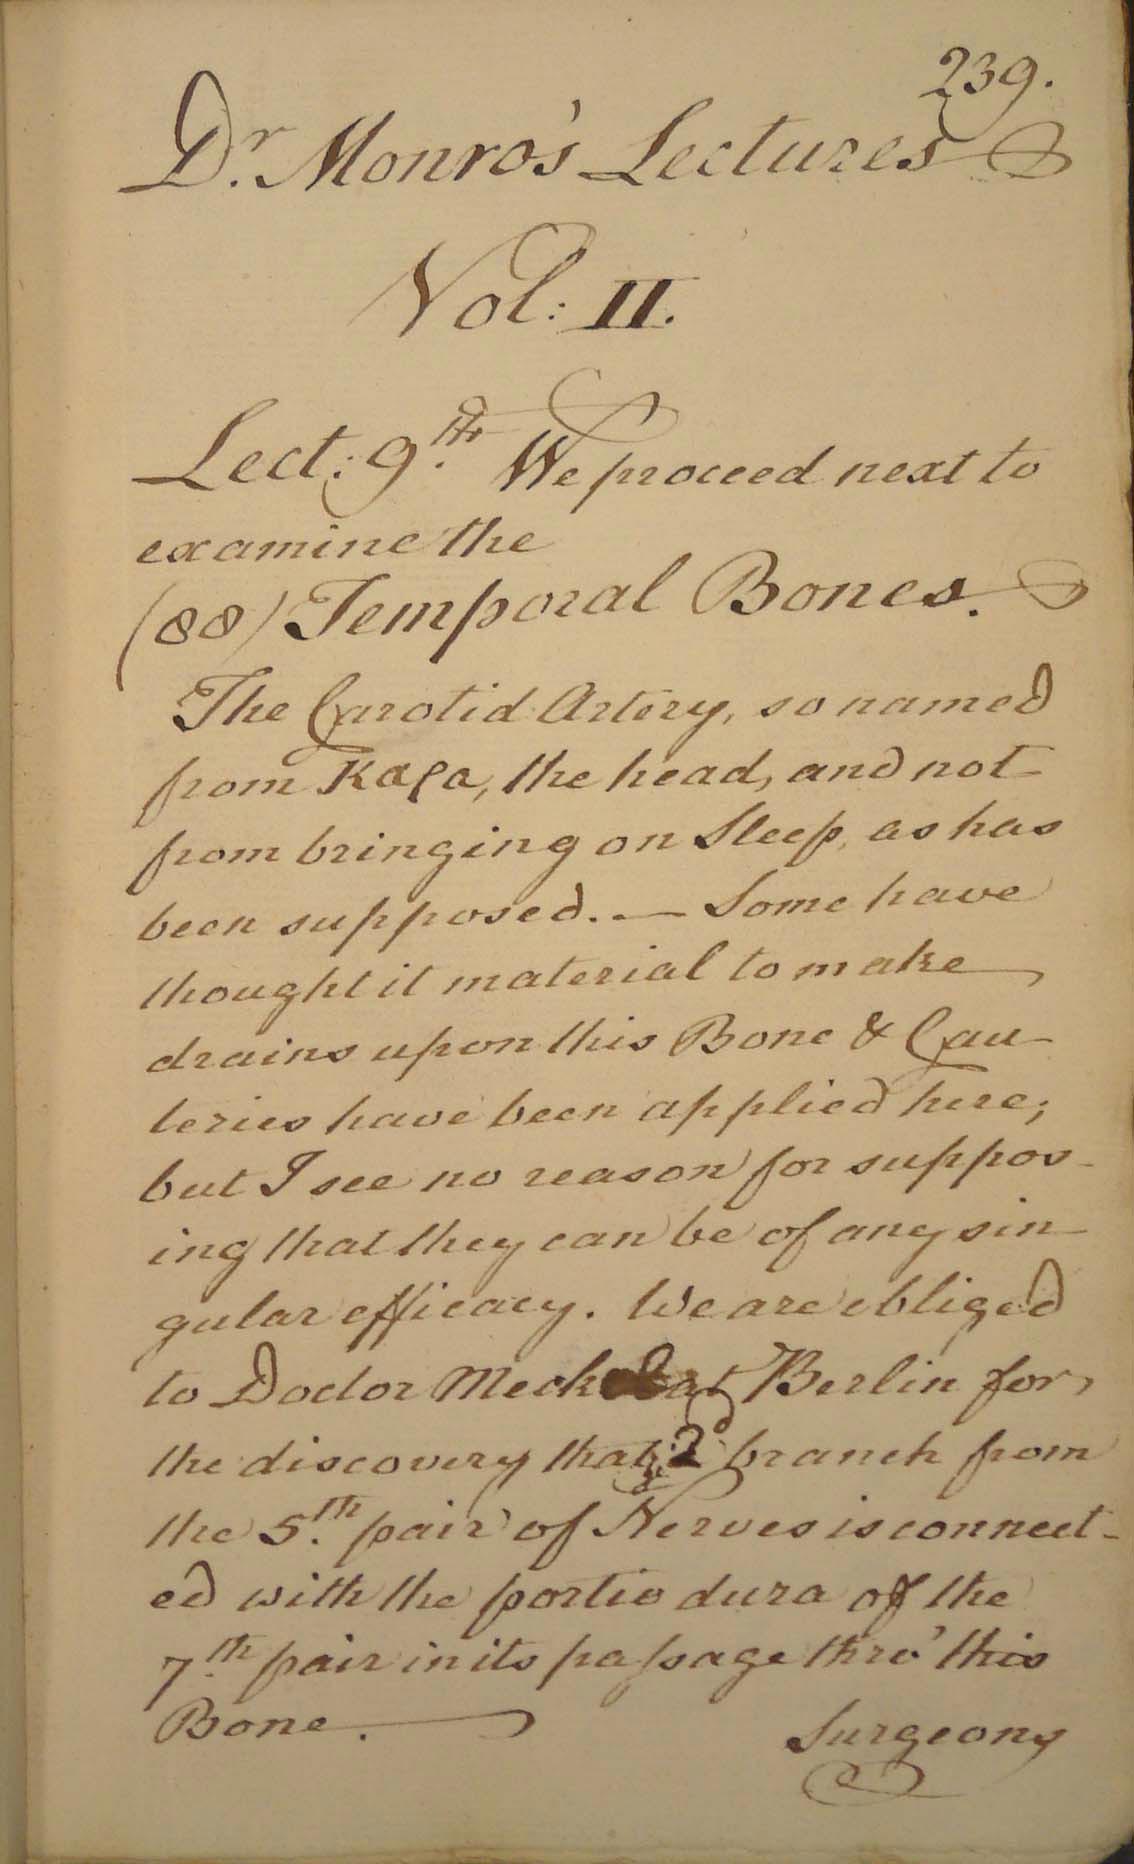 239.
Dr. Monro's Lectures
Vol: II.
Lect: 9th. We proceed next to
examine the
(88) Temporal Bones.
The Carotid Artery, so named
from Καρα, the head, and not
from bringing on Sleep, as has
been supposed. — Some have
thought it material to make
drains upon this Bone & Cau-
teries have been applied here;
but I see no reason for suppos-
ing that they can be of any sin-
gular efficacy. We are obliged
to Doctor Meckel at Berlin for
the discovery that ye 2d branch from
the 5th. pair of Nerves is connect-
ed with the portio dura of the
7th. pair in its passage thro' this
Bone.
Surgeons